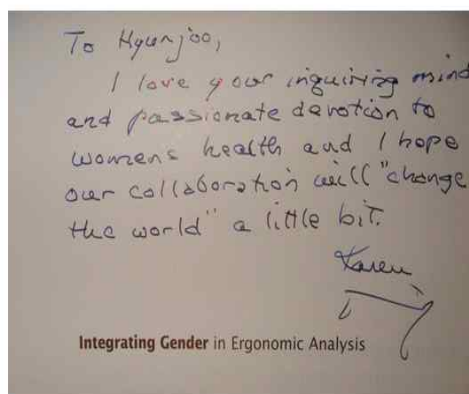 To Hyunjoo,
I love your inquiring mind
and passionate devotion to
womens health and I hope
our collaboration will "change
the world" a little bit.
Karen
Integrating Gender in Ergonomic Analysis